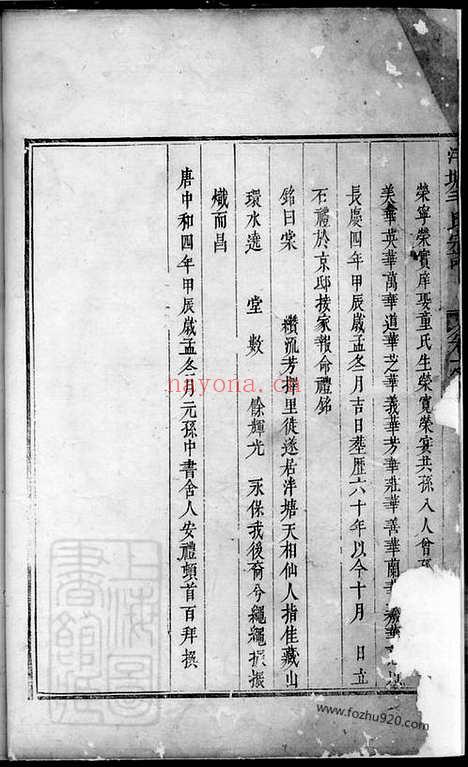 榮寧榮實庠娶童氏生榮寬榮實共孫八人曾孫
美華英華萬華道華芝華義華芳華莊華善華蘭華
長慶四年甲辰歲孟冬月吉日塟歷六十年以今十月 日立
石禮於京邸接家報命禮銘
銘曰棠 纘流芳擇里徒遂居泮塘天相仙人指佳藏山
環水遶 堂數 餘輝光 永保我後裔兮繩繩振振
熾而昌
唐中和四年甲辰歲孟冬月元孫中書舍人安禮頓首百拜撰
上海圖書館藏
nayona.cn
www.fozhu920.com